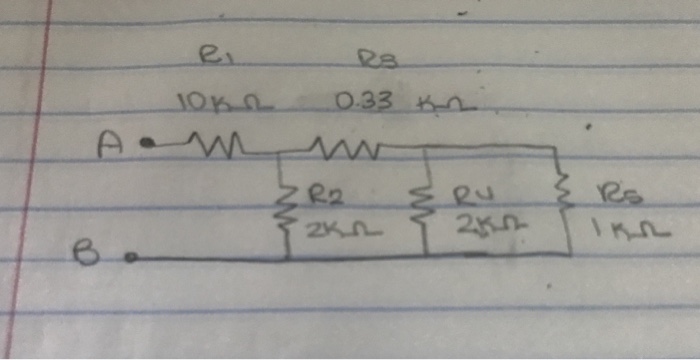 R1 R3
10KΩ 0.33 KΩ
A
R2 R4 R5
2KΩ 2KΩ 1KΩ
B